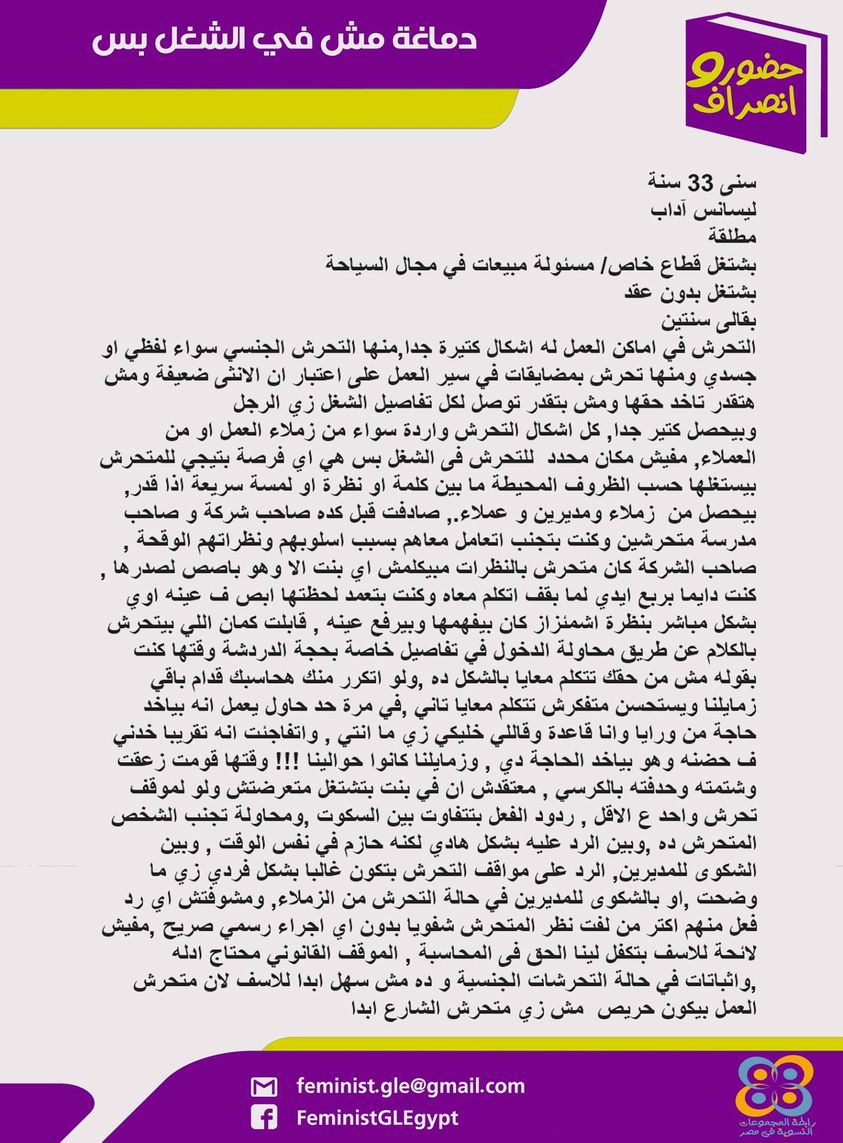 دماغة مش في الشغل بس
حضور و
انصراف
سنى 33 سنة
ليسانس آداب
مطلقة
بشتغل قطاع خاص/ مسئولة مبيعات في مجال السياحة
بشتغل بدون عقد
بقالى سنتين
التحرش في اماكن العمل له اشكال كتيرة جدا,منها التحرش الجنسي سواء لفظي او
جسدي ومنها تحرش بمضايقات في سير العمل على اعتبار ان الانثى ضعيفة ومش
هتقدر تاخد حقها ومش بتقدر توصل لكل تفاصيل الشغل زي الرجل
وبيحصل كتير جدا, كل اشكال التحرش واردة سواء من زملاء العمل او من
العملاء, مفيش مكان محدد للتحرش فى الشغل بس هي اي فرصة بتيجي للمتحرش
بيستغلها حسب الظروف المحيطة ما بين كلمة او نظرة او لمسة سريعة اذا قدر,
بيحصل من زملاء ومديرين و عملاء., صادفت قبل كده صاحب شركة و صاحب
مدرسة متحرشين وكنت بتجنب اتعامل معاهم بسبب اسلوبهم ونظراتهم الوقحة ,
صاحب الشركة كان متحرش بالنظرات مبيكلمش اي بنت الا وهو باصص لصدرها ,
كنت دايما بربع ايدي لما بقف اتكلم معاه وكنت بتعمد لحظتها ابص ف عينه اوي
بشكل مباشر بنظرة اشمئزاز كان بيفهمها وبيرفع عينه , قابلت كمان اللي بيتحرش
بالكلام عن طريق محاولة الدخول في تفاصيل خاصة بحجة الدردشة وقتها كنت
بقوله مش من حقك تتكلم معايا بالشكل ده ,ولو اتكرر منك هحاسبك قدام باقي
زمايلنا ويستحسن متفكرش تتكلم معايا تاني ,في مرة حد حاول يعمل انه بياخد
حاجة من ورايا وانا قاعدة وقاللي خليكي زي ما انتي , واتفاجئت انه تقريبا خدني
ف حضنه وهو بياخد الحاجة دي , وزمايلنا كانوا حوالينا !!! وقتها قومت زعقت
وشتمته وحدفته بالكرسي , معتقدش ان في بنت بتشتغل متعرضتش ولو لموقف
تحرش واحد ع الاقل , ردود الفعل بتتفاوت بين السكوت ,ومحاولة تجنب الشخص
المتحرش ده ,وبين الرد عليه بشكل هادي لكنه حازم في نفس الوقت , وبين
الشكوى للمديرين, الرد على مواقف التحرش بتكون غالبا بشكل فردي زي ما
وضحت ,او بالشكوى للمديرين في حالة التحرش من الزملاء, ومشوفتش اي رد
فعل منهم اكتر من لفت نظر المتحرش شفويا بدون اي اجراء رسمي صريح ,مفيش
لائحة للاسف بتكفل لينا الحق فى المحاسبة , الموقف القانوني محتاج ادله
,واثباتات في حالة التحرشات الجنسية و ده مش سهل ابدا للاسف لان متحرش
العمل بيكون حريص مش زي متحرش الشارع ابدا
feminist.gle@gmail.com
FeministGLEgypt
رابطة المجموعات
النسوية في مصر